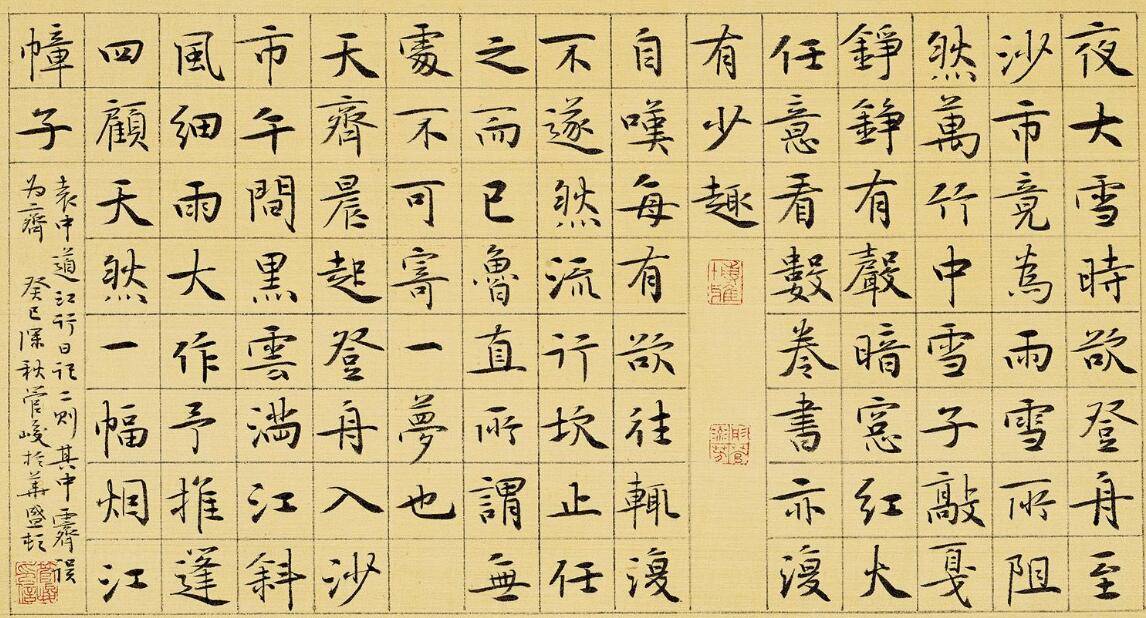 夜大雪時欲登舟至
沙市竟為雨雪所阻
然萬竹中雪子敲戛
錚錚有聲暗窓紅火
任意看數卷書亦復
有少趣
自嘆每有欲往輒復
不遂然流行坎止任
之而已魯直所謂無
處不可寄一夢也
天齊晨起登舟入沙
市午間黑雲滿江斜
風細雨大作予推蓬
四顧天然一幅烟江
幛子
袁中道江行日記二則其中霽誤
为齊 癸巳深秋管峻於華盛頓